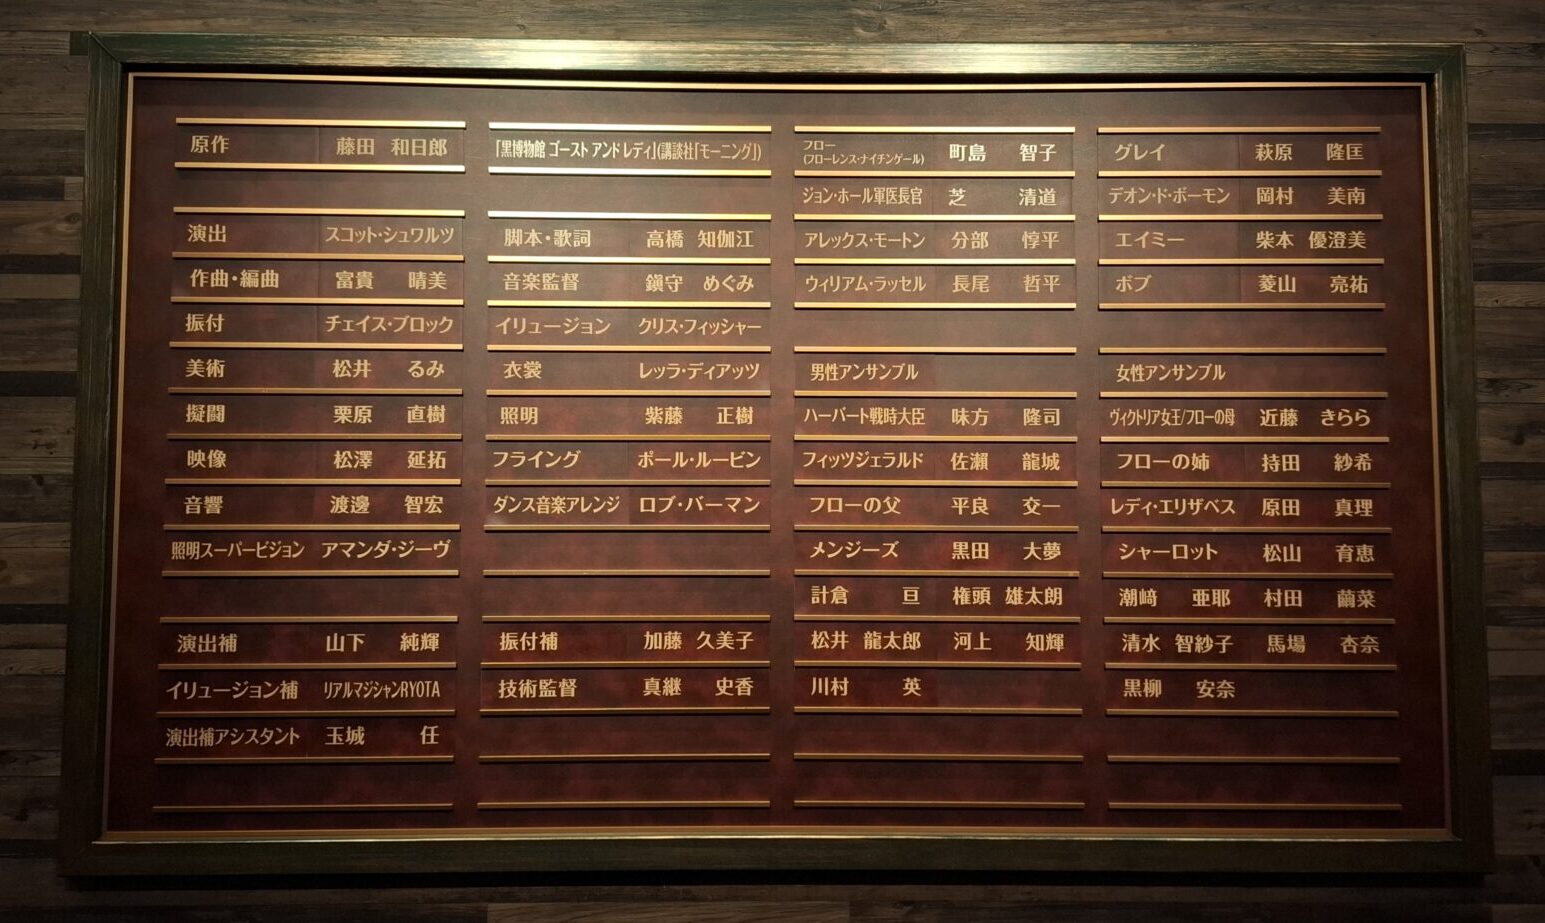 原作 藤田 和日郎
「黒博物館 ゴースト アンド レディ」(講談社「モーニング」)
演出 スコット・シュワルツ
脚本・歌詞 高橋 知伽江
作曲・編曲 富貴 晴美
音楽監督 鎭守 めぐみ
振付 チェイス・ブロック
イリュージョン クリス・フィッシャー
美術 松井 るみ
衣裳 レッラ・ディアッツ
擬闘 栗原 直樹
照明 紫藤 正樹
映像 松澤 延拓
フライング ポール・ルービン
音響 渡邊 智宏
ダンス音楽アレンジ ロブ・バーマン
照明スーパービジョン アマンダ・ジーヴ
演出補 山下 純輝
振付補 加藤 久美子
イリュージョン補 リアルマジシャンRYOTA
技術監督 真継 史香
演出補アシスタント 玉城 任
フロー
(フローレンス・ナイチンゲール) 町島 智子
グレイ 萩原 隆匡
ジョン・ホール軍医長官 芝 清道
デオン・ド・ボーモン 岡村 美南
アレックス・モートン 分部 惇平
エイミー 柴本 優澄美
ウィリアム・ラッセル 長尾 哲平
ボブ 菱山 亮祐
男性アンサンブル
ハーバート戦時大臣 味方 隆司
フィッツジェラルド 佐瀬 龍城
フローの父 平良 交一
メンジーズ 黒田 大夢
計倉 亘 権頭 雄太朗
松井 龍太郎 河上 知輝
川村 英
女性アンサンブル
ヴィクトリア女王/フローの母 近藤 きらら
フローの姉 持田 紗希
レディ・エリザベス 原田 真理
シャーロット 松山 育恵
潮﨑 亜耶 村田 繭菜
清水 智紗子 馬場 杏奈
黒柳 安奈